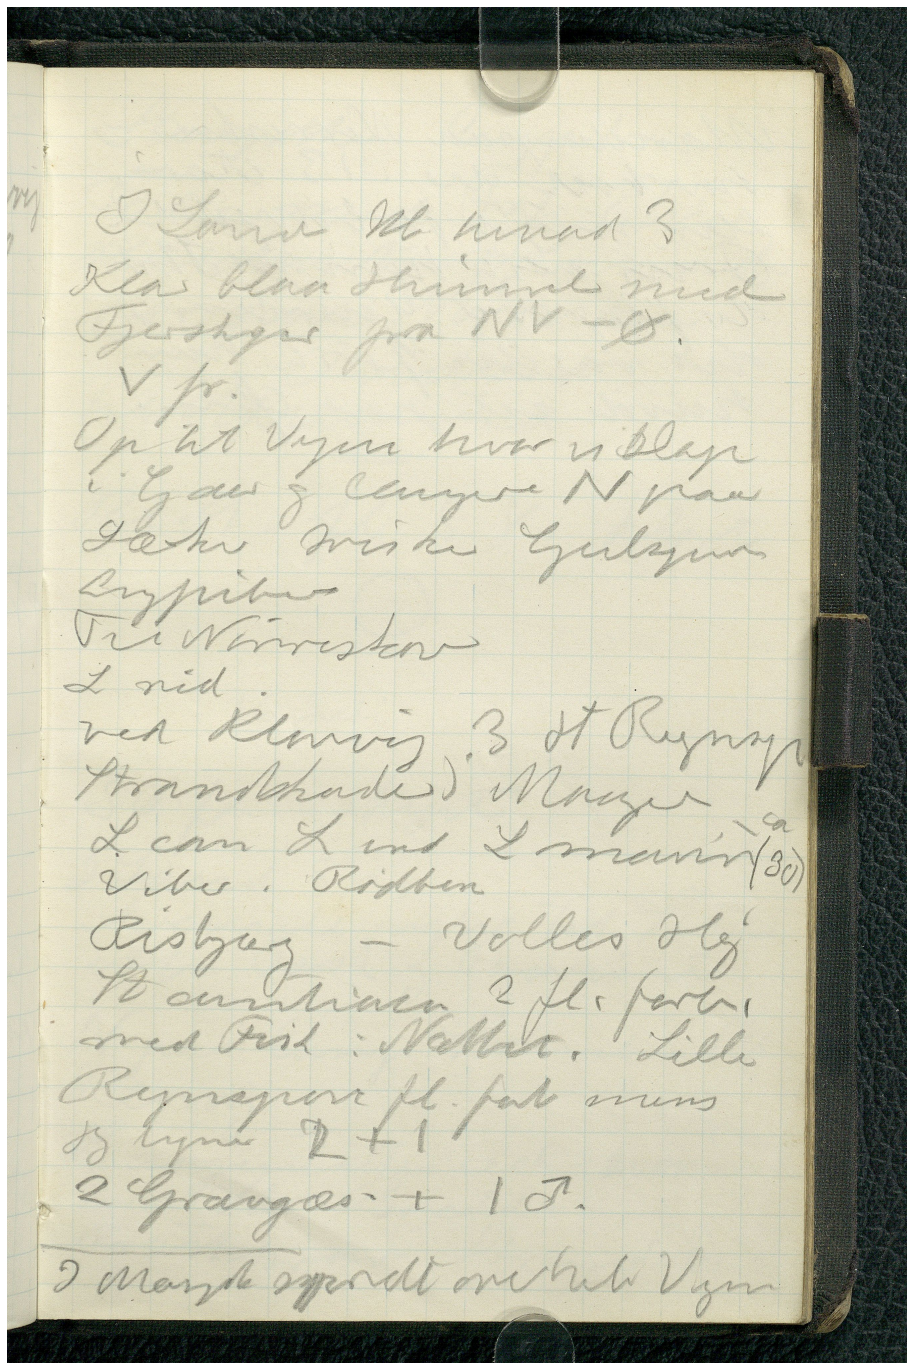 I Land Kl henad 3
Klar blaa Himmel med
Fjerskyer fra NV - Ø.
V fr.
Op til Vejen hvor vi slap
i Gaar og længere N paa
Lærker Viber Gulspurv
Til Nørreskov
L rid.
ved Klovvig. 3 St Regnsp
Strandskade) Maager
L can L und L marin (ca 30)
Viber. Rødben
Risbjerg — Volles Høj
St cantiaca 2 fl. forb.
med Fisk i Næbbet. Lille
Regnspove fl. forb mens
jeg 2 + 1
2 Gravgæs. + 1 ♂.
spredt over hele Vejen